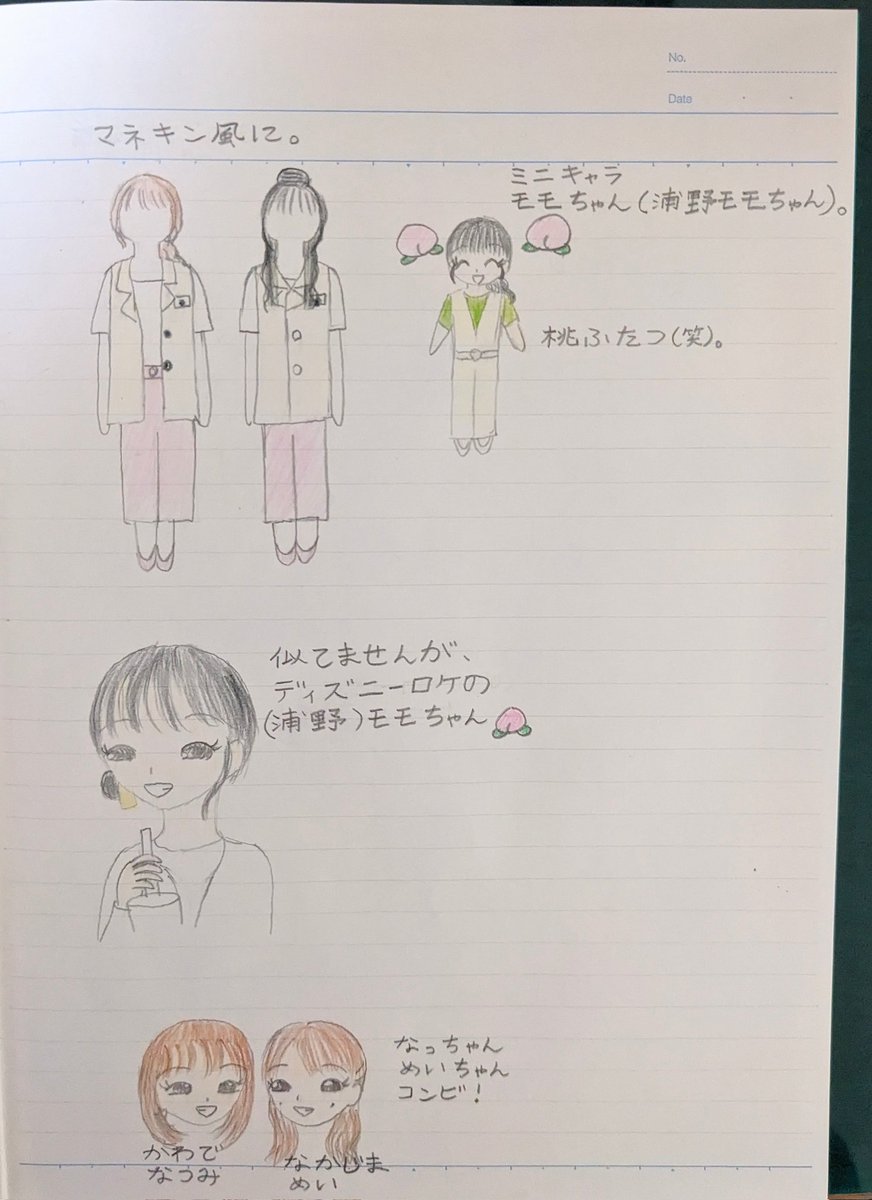 No.
Date
マネキン風に。
ミニキャラ
モモちゃん(浦野モモちゃん)。
桃ふたつ(笑)。
似てませんが、
ディズニーロケの
(浦野)モモちゃん
なっちゃん
めいちゃん
コンビ!
かわで
なつみ
なかじま
めい